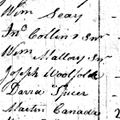 Wm Seay
Jno Collins Snr
Wm Mallory Snr
Joseph Woolfolk
David Spicer
Martin Canada